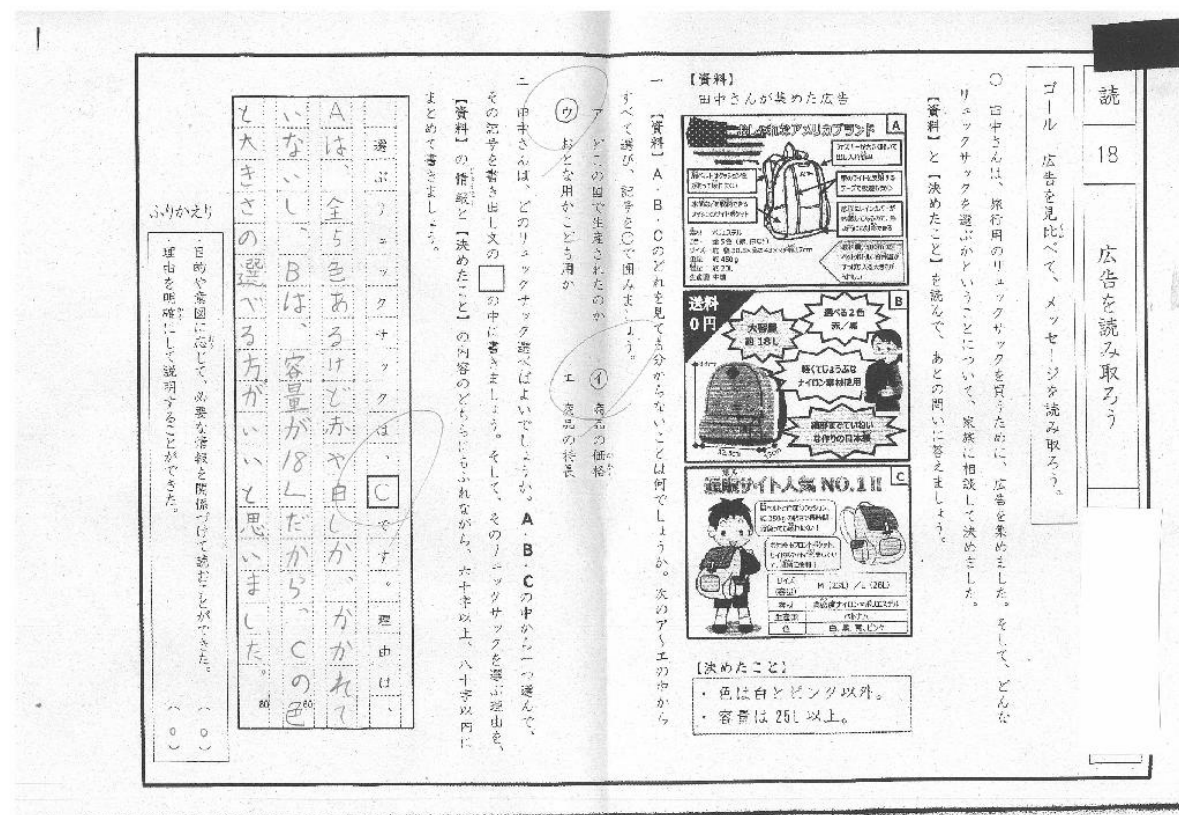 読
18
広告を読み取ろう
ゴール 広告を見比べて、メッセージを読み取ろう。
○ 田中さんは、旅行用のリュックサックを買うために、広告を集めました。そして、どんな
リュックサックを選ぶかということについて、家族に相談して決めました。
【資料】と【決めたこと】を読んで、あとの問いに答えましょう。
【資料】
田中さんが集めた広告
A
おしゃれなアメリカブランド
B
送料
0円
大容量
約18L
選べる2色
赤/黒
軽くてじょうぶな
ナイロン素材使用
細部までていねい
な作りの日本製
C
通販サイト人気NO.1!!
サイズ
(容量)
M(23L)/L(26L)
生産国
ベトナム
色
白、黒、青、ピンク
【決めたこと】
・色は白とピンク以外。
・容量は25L以上。
一 【資料】A・B・Cのどれを見ても分からないことは何でしょうか。次のア～エの中から
すべて選び、記号を○で囲みましょう。
ア どこの国で生産されたのか
イ 商品の価格
ウ おとな用かこども用か
エ 商品の特長
二 田中さんは、どのリュックサック選べばよいでしょうか。A・B・Cの中から一つ選んで、
その記号を書き出し文の□の中に書きましょう。そして、そのリュックサックを選ぶ理由を、
【資料】の情報と【決めたこと】の内容のどちらにもふれながら、六十字以上、八十字以内に
まとめて書きましょう。
選ぶリュックサックは、Cです。理由は、
Aは、全5色あるけど赤や白しか、かかれて
いないし、Bは、容量が18Lだから、Cの色
と大きさの選べる方がいいと思いました。
60
80
ふりかえり
・目的や意図に応じて、必要な情報と関係づけて読むことができた。(○)
・理由を明確にして説明することができた。(○)